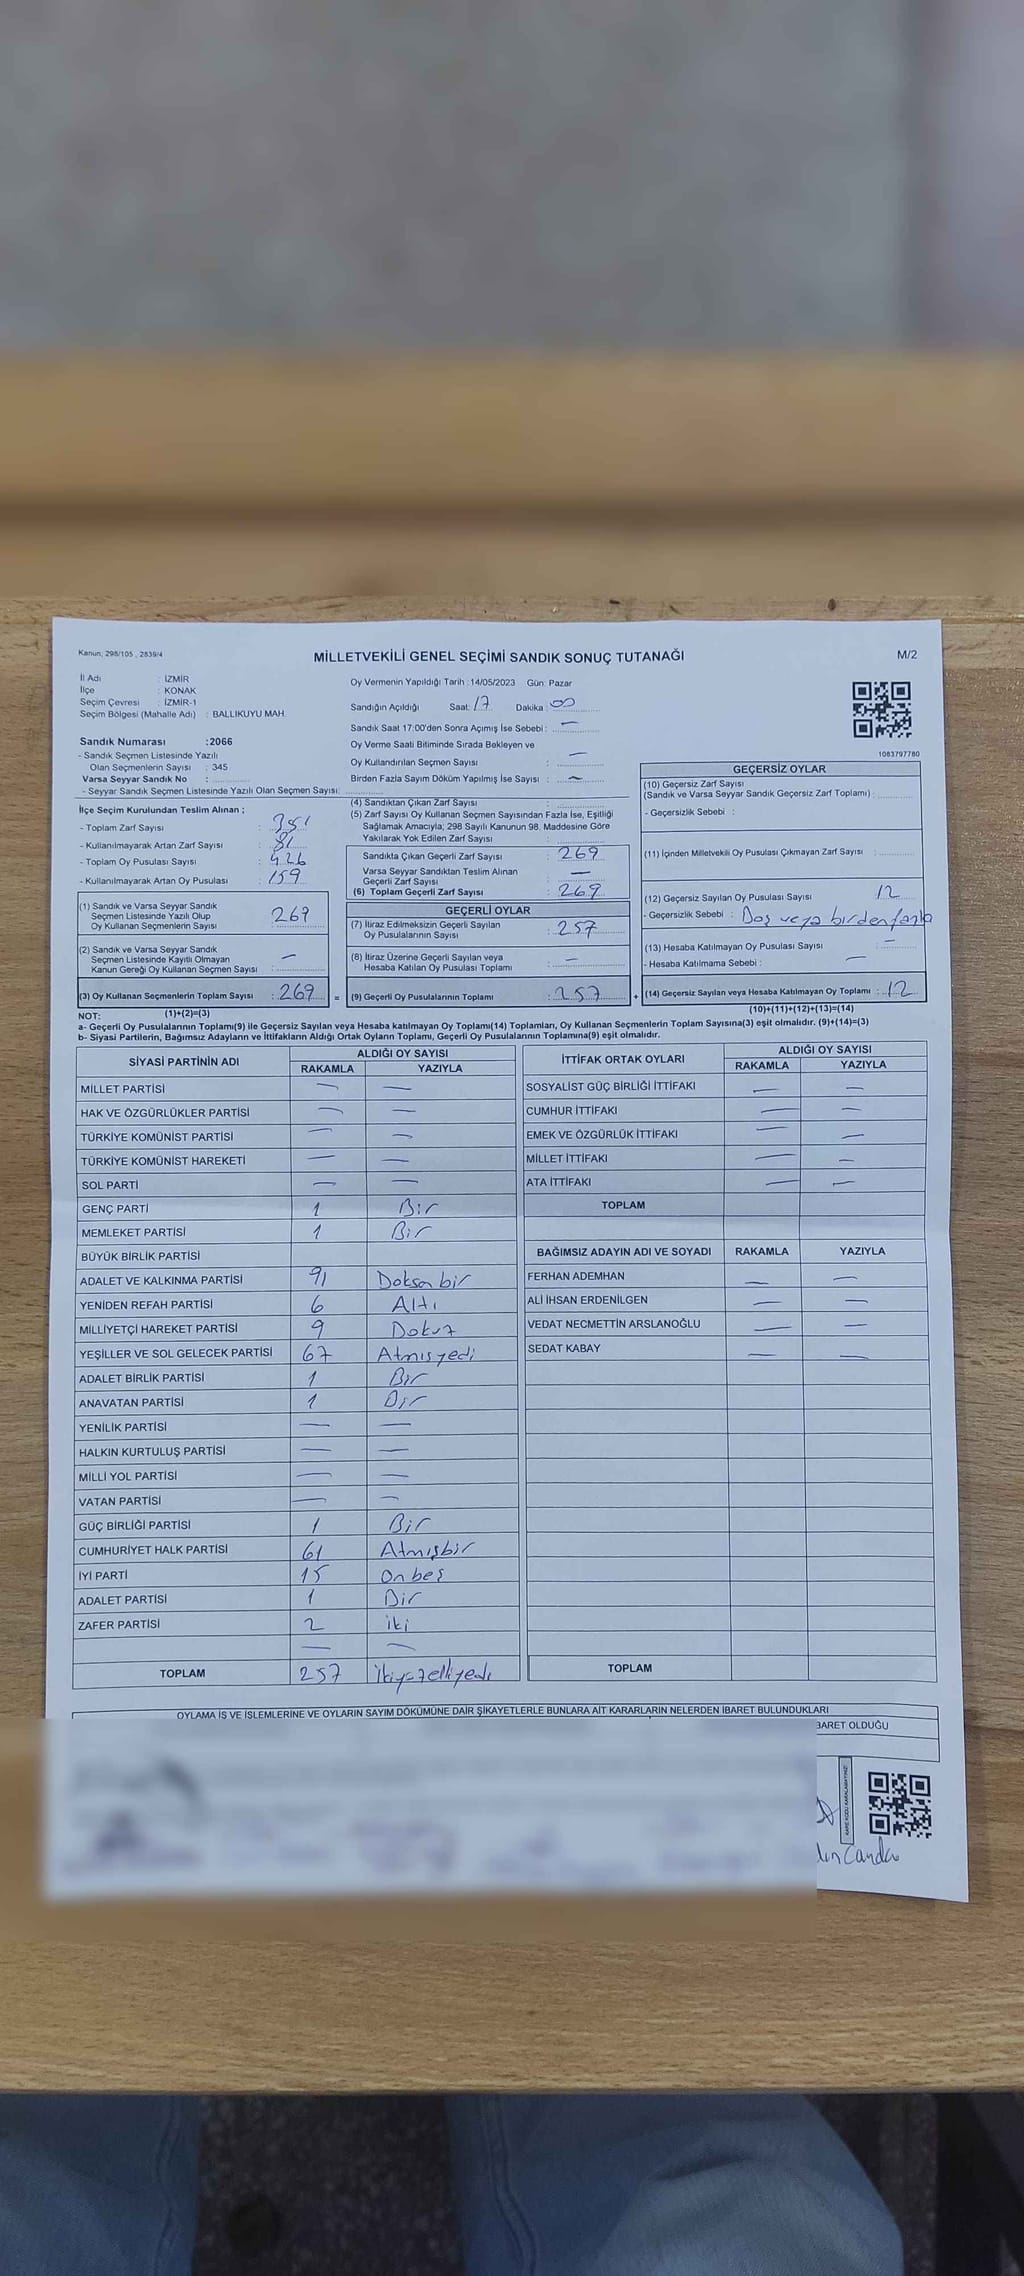 Kanun; 298/105 , 2839/4
MİLLETVEKİLİ GENEL SEÇİMİ SANDIK SONUÇ TUTANAĞI
M/2
İl Adı : İZMİR
İlçe : KONAK
Seçim Çevresi : İZMİR-1
Seçim Bölgesi (Mahalle Adı) : BALLIKUYU MAH.
Sandık Numarası :2066
- Sandık Seçmen Listesinde Yazılı
Olan Seçmenlerin Sayısı : 345
Varsa Seyyar Sandık No :
- Seyyar Sandık Seçmen Listesinde Yazılı Olan Seçmen Sayısı:
Oy Vermenin Yapıldığı Tarih :14/05/2023 Gün: Pazar
Sandığın Açıldığı Saat: 17 Dakika : 00
Sandık Saat 17:00'den Sonra Açımış İse Sebebi : —
Oy Verme Saati Bitiminde Sırada Bekleyen ve
Oy Kullandırılan Seçmen Sayısı : —
Birden Fazla Sayım Döküm Yapılmış İse Sayısı : —
1083797780
İlçe Seçim Kurulundan Teslim Alınan ;
- Toplam Zarf Sayısı : 351
- Kullanılmayarak Artan Zarf Sayısı : 81
- Toplam Oy Pusulası Sayısı : 426
- Kullanılmayarak Artan Oy Pusulası : 159
(1) Sandık ve Varsa Seyyar Sandık
Seçmen Listesinde Yazılı Olup
Oy Kullanan Seçmenlerin Sayısı : 269
(2) Sandık ve Varsa Seyyar Sandık
Seçmen Listesinde Kayıtlı Olmayan
Kanun Gereği Oy Kullanan Seçmen Sayısı : —
(3) Oy Kullanan Seçmenlerin Toplam Sayısı : 269 =
(4) Sandıktan Çıkan Zarf Sayısı :
(5) Zarf Sayısı Oy Kullanan Seçmen Sayısından Fazla İse, Eşitliği
Sağlamak Amacıyla; 298 Sayılı Kanunun 98. Maddesine Göre
Yakılarak Yok Edilen Zarf Sayısı :
Sandıkta Çıkan Geçerli Zarf Sayısı : 269
Varsa Seyyar Sandıktan Teslim Alınan
Geçerli Zarf Sayısı : —
(6) Toplam Geçerli Zarf Sayısı : 269
GEÇERLİ OYLAR
(7) İtiraz Edilmeksizin Geçerli Sayılan
Oy Pusulalarının Sayısı : 257
(8) İtiraz Üzerine Geçerli Sayılan veya
Hesaba Katılan Oy Pusulası Toplamı : —
(9) Geçerli Oy Pusulalarının Toplamı : 257 +
GEÇERSİZ OYLAR
(10) Geçersiz Zarf Sayısı
(Sandık ve Varsa Seyyar Sandık Geçersiz Zarf Toplamı) :
- Geçersizlik Sebebi :
(11) İçinden Milletvekili Oy Pusulası Çıkmayan Zarf Sayısı :
(12) Geçersiz Sayılan Oy Pusulası Sayısı : 12
- Geçersizlik Sebebi : Boş veya birden fazla
(13) Hesaba Katılmayan Oy Pusulası Sayısı : —
- Hesaba Katılmama Sebebi : —
(14) Geçersiz Sayılan veya Hesaba Katılmayan Oy Toplamı : 12
NOT: (1)+(2)=(3)
(10)+(11)+(12)+(13)=(14)
a- Geçerli Oy Pusulalarının Toplamı(9) ile Geçersiz Sayılan veya Hesaba katılmayan Oy Toplamı(14) Toplamları, Oy Kullanan Seçmenlerin Toplam Sayısına(3) eşit olmalıdır. (9)+(14)=(3)
b- Siyasi Partilerin, Bağımsız Adayların ve İttifakların Aldığı Ortak Oyların Toplamı, Geçerli Oy Pusulalarının Toplamına(9) eşit olmalıdır.
SİYASİ PARTİNİN ADI ALDIĞI OY SAYISI
RAKAMLA YAZIYLA
MİLLET PARTİSİ — —
HAK VE ÖZGÜRLÜKLER PARTİSİ — —
TÜRKİYE KOMÜNİST PARTİSİ — —
TÜRKİYE KOMÜNİST HAREKETİ — —
SOL PARTİ — —
GENÇ PARTİ 1 Bir
MEMLEKET PARTİSİ 1 Bir
BÜYÜK BİRLİK PARTİSİ
ADALET VE KALKINMA PARTİSİ 91 Doksan bir
YENİDEN REFAH PARTİSİ 6 Altı
MİLLİYETÇİ HAREKET PARTİSİ 9 Dokuz
YEŞİLLER VE SOL GELECEK PARTİSİ 67 Atmış yedi
ADALET BİRLİK PARTİSİ 1 Bir
ANAVATAN PARTİSİ 1 Bir
YENİLİK PARTİSİ — —
HALKIN KURTULUŞ PARTİSİ — —
MİLLİ YOL PARTİSİ — —
VATAN PARTİSİ — —
GÜÇ BİRLİĞİ PARTİSİ 1 Bir
CUMHURİYET HALK PARTİSİ 61 Atmışbir
İYİ PARTİ 15 On beş
ADALET PARTİSİ 1 Bir
ZAFER PARTİSİ 2 iki
— —
TOPLAM 257 ikiyüzelliyedi
İTTİFAK ORTAK OYLARI ALDIĞI OY SAYISI
RAKAMLA YAZIYLA
SOSYALİST GÜÇ BİRLİĞİ İTTİFAKI — —
CUMHUR İTTİFAKI — —
EMEK VE ÖZGÜRLÜK İTTİFAKI — —
MİLLET İTTİFAKI — —
ATA İTTİFAKI — —
TOPLAM
BAĞIMSIZ ADAYIN ADI VE SOYADI RAKAMLA YAZIYLA
FERHAN ADEMHAN — —
ALİ İHSAN ERDENİLGEN — —
VEDAT NECMETTİN ARSLANOĞLU — —
SEDAT KABAY — —
TOPLAM
OYLAMA İŞ VE İŞLEMLERİNE VE OYLARIN SAYIM DÖKÜMÜNE DAİR ŞİKAYETLERLE BUNLARA AİT KARARLARIN NELERDEN İBARET BULUNDUKLARI
BARET OLDUĞU